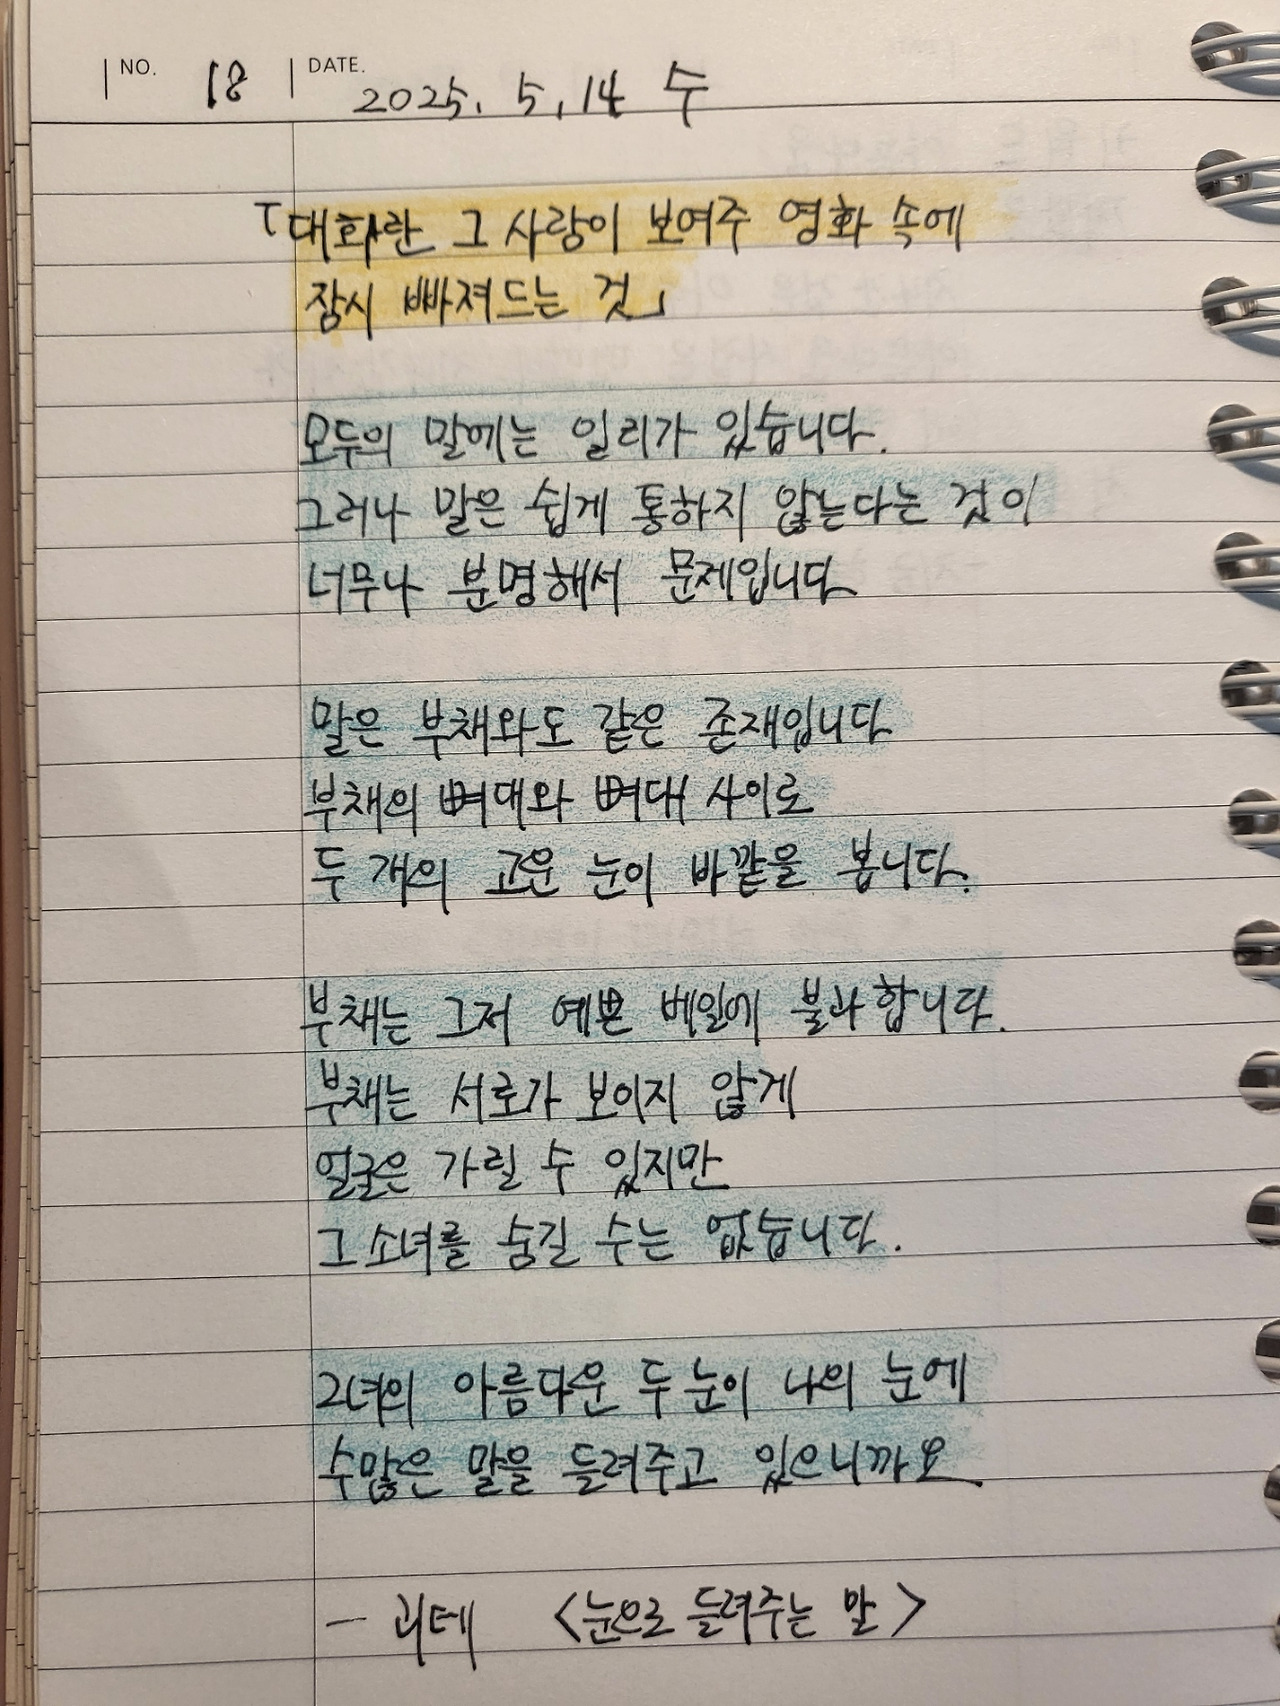 NO. 18 DATE. 2025. 5. 14 수
「대화란 그 사람이 보여주 영화 속에
잠시 빠져드는 것」
모두의 말에는 일리가 있습니다.
그러나 말은 쉽게 통하지 않는다는 것이
너무나 분명해서 문제입니다
말은 부채와도 같은 존재입니다
부채의 뼈대와 뼈대 사이로
두 개의 고운 눈이 바깥을 봅니다.
부채는 그저 예쁜 베일에 불과합니다.
부채는 서로가 보이지 않게
얼굴은 가릴 수 있지만
그 소녀를 숨길 수는 없습니다.
그녀의 아름다운 두 눈이 나의 눈에
수많은 말을 들려주고 있으니까요
- 괴테 <눈으로 들려주는 말>